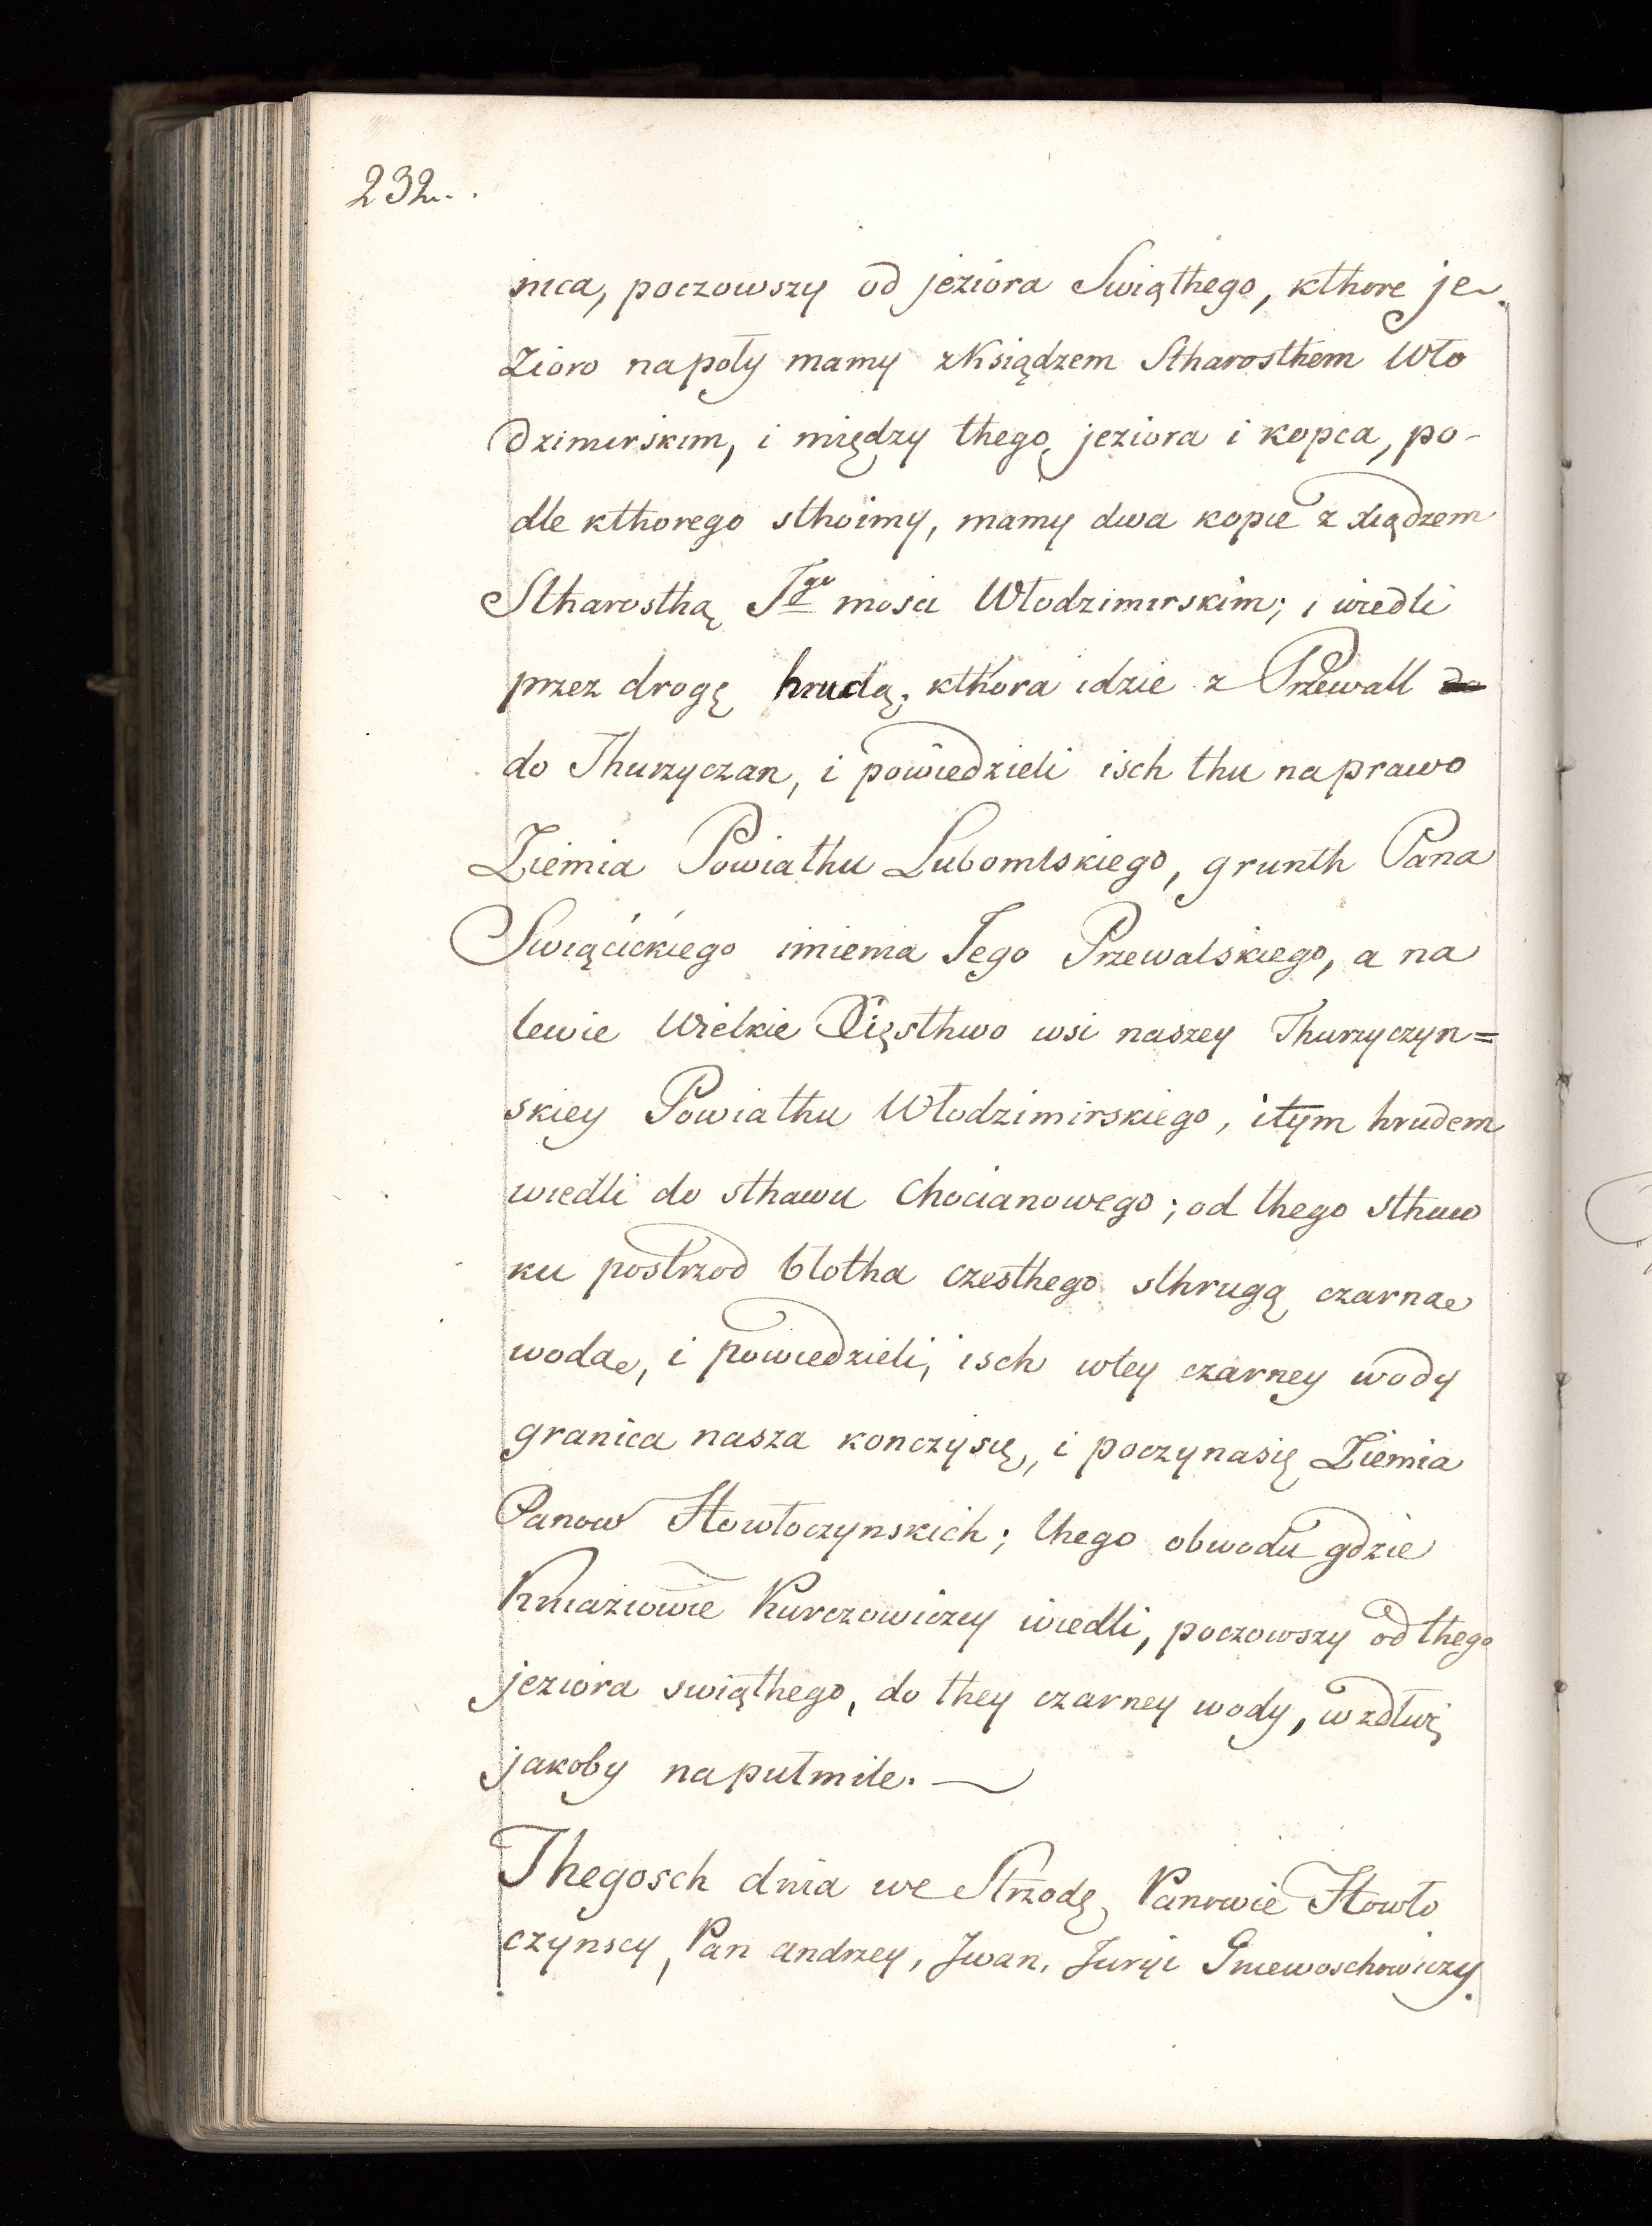 232.
nica, poczowszy od jeziora Swiąthego, kthore je-
zioro napoły mamy zKsiądzem Stharosthem Wło
dzimirskim, i między thego jeziora i kopca, po-
dle kthorego sthoimy, mamy dwa kopce z xiądzem
Stharosthą Jgo mosci Włodzimirskim; i wiedli
przez drogę hrudą, kthora idzie z Przewall
do Thurzyczan, i powiedzieli isch thu naprawo
Ziemia Powiathu Lubomlskiego, grunth Pana
Swiącickiego imienia Jego Przewalskiego, a na
lewie Wielkie Xięsthwo wsi naszey Thurzyczyn=
skiey Powiathu Włodzimirskiego, itym hrudem
wiedli do sthawu Chocianowego; od thego sthaw
ku postrzod błotha czesthego sthrugą czarnae
wodae, i powiedzieli, isch wtey czarney wody
granica nasza konczysię, i poczynasię Ziemia
Panow Howłoczynskich; thego obwodu gdzie
Kniaziowie Kurczowiczey wiedli, poczowszy od thego
jeziora swiąthego, do they czarney wody, wzdłuż
jakoby napułmile.
Thegosch dnia we Strzodę Panowie Howło
czynscy, Pan andrzey, Jwan, Juryi Gniewoschowiczy.